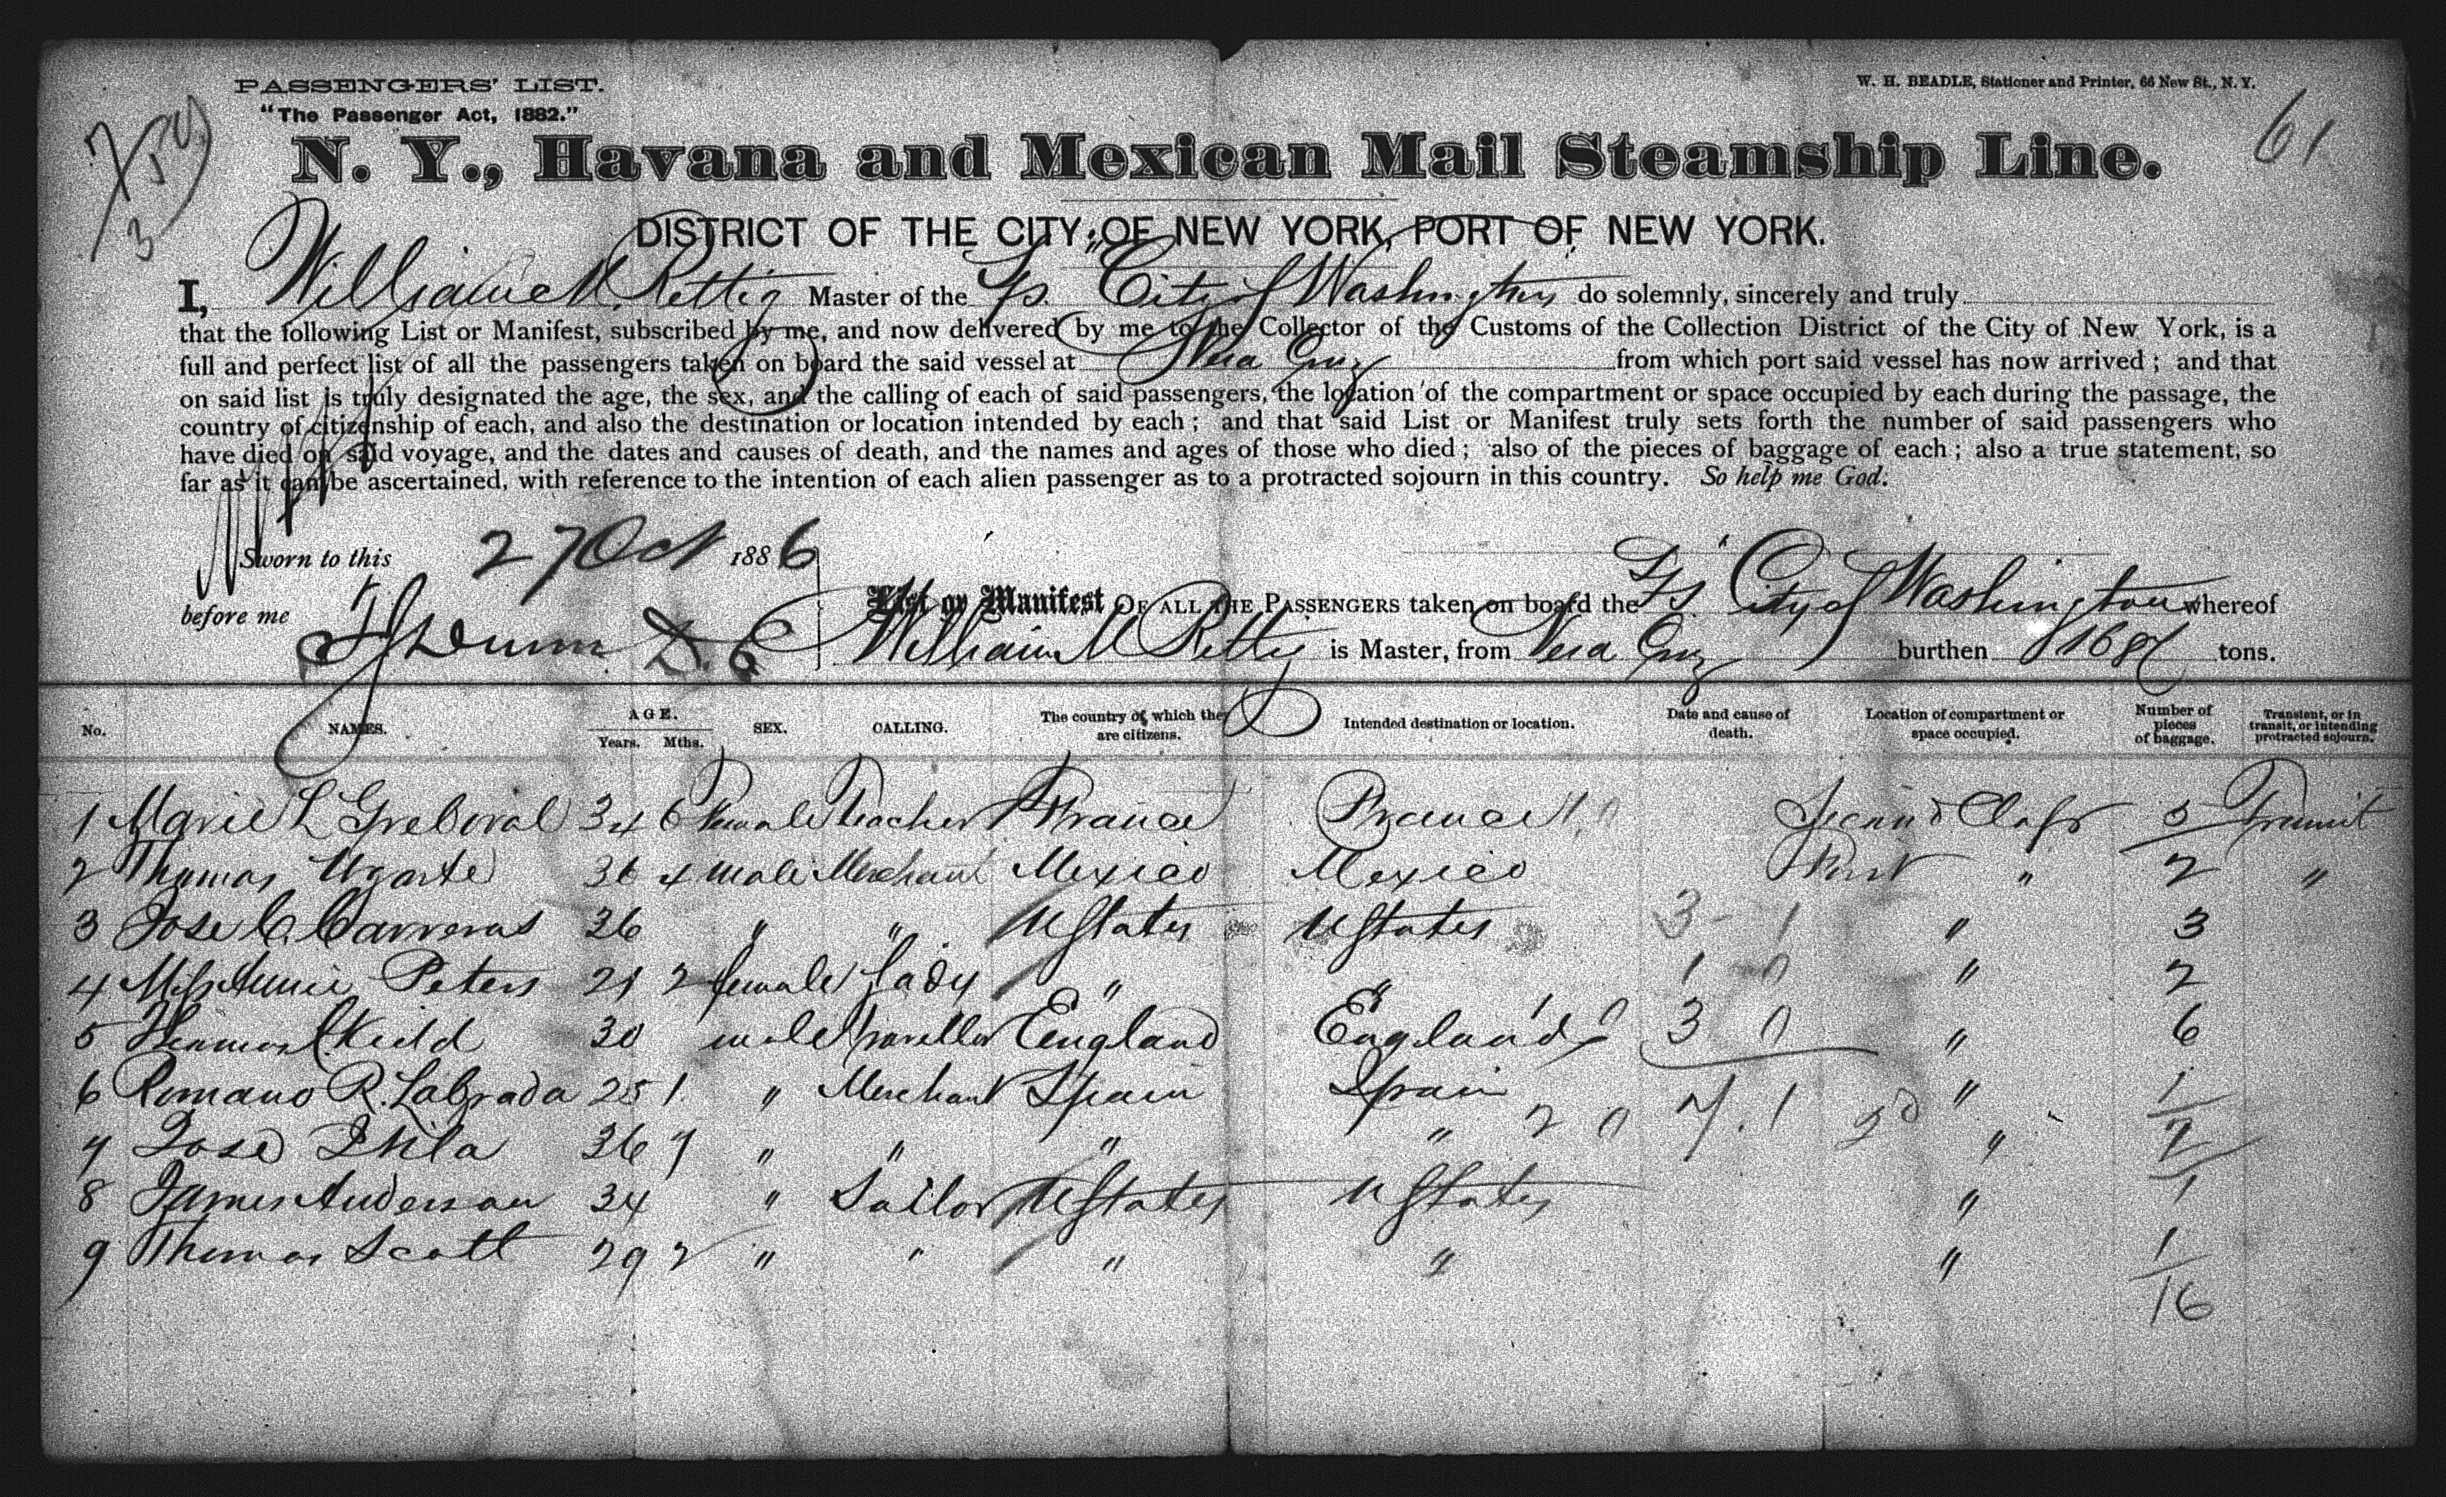 PASSENGERS' LIST.
W. H. BEADLE, Stationer and Printer, 66 New St., N. Y.
"The Passenger Act, 1882."
61
N. Y., Havana and Mexican Mail Steamship Line.
3
DISTRICT OF THE CITY OF NEW YORK, PORT OF NEW YORK.
I, William M Rettig Master of the Ss. "City of Washington do solemnly, sincerely and truly
that the following List or Manifest, subscribed by me, and now delivered by me to the Collector of the Customs of the Collection District of the City of New York, is a
full and perfect list of all the passengers taken on board the said vessel at Vera Cruz from which port said vessel has now arrived ; and that
on said list is truly designated the age, the sex, and the calling of each of said passengers, the location of the compartment or space occupied by each during the passage, the
country of citizenship of each, and also the destination or location intended by each ; and that said List or Manifest truly sets forth the number of said passengers who
have died on said voyage, and the dates and causes of death, and the names and ages of those who died ; also of the pieces of baggage of each ; also a true statement, so
far as it can be ascertained, with reference to the intention of each alien passenger as to a protracted sojourn in this country. So help me God.
Sworn to this 27 Oct 1886
before me
List or Manifest OF ALL THE PASSENGERS taken on board the Ss "City of Washington whereof
William M Rettig is Master, from Vera Cruz burthen tons.
No. NAMES. AGE. Years. Mths. SEX. CALLING. The country of which they are citizens. Intended destination or location. Date and cause of death. Location of compartment or space occupied. Number of pieces of baggage. Transient, or in transit, or intending protracted sojourn.
1 Marie L Greboval 34 6 Female Teacher France France Second Class 5 Transit
2 Thomas Ugarte 36 4 male Merchant Mexico Mexico First " 2 "
3 Jose C. Carreras 36 " " U States U States 3 - 1 " 3
4 Miss Annie Peters 21 2 female Lady " " 1 0 " 2
5 30 male Traveller England England 3 0 " 6
6 Romano R. Labrada 25 1 " Merchant Spain Spain " 1
7 Jose 36 7 " " " " 2 0 7. 1 2d "
8 James Anderson 34 " Sailor U States U States " 1
9 Thomas Scott 29 2 " " " " " 1
16